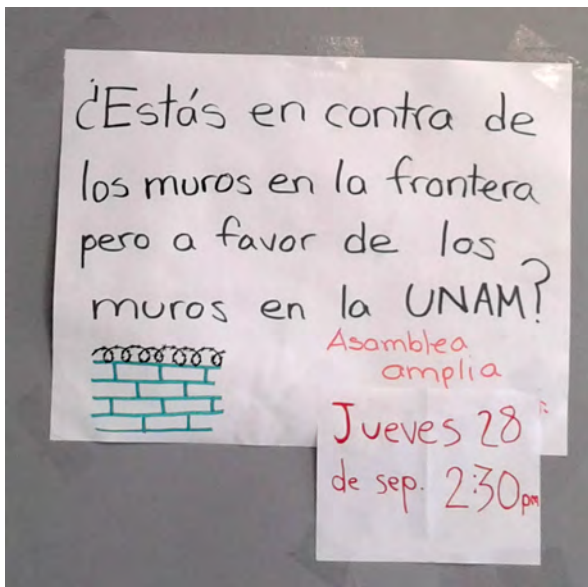 ¿Estás en contra de
los muros en la frontera
pero a favor de los
muros en la UNAM?
Asamblea
amplia
Jueves 28
de sep. 2:30pm